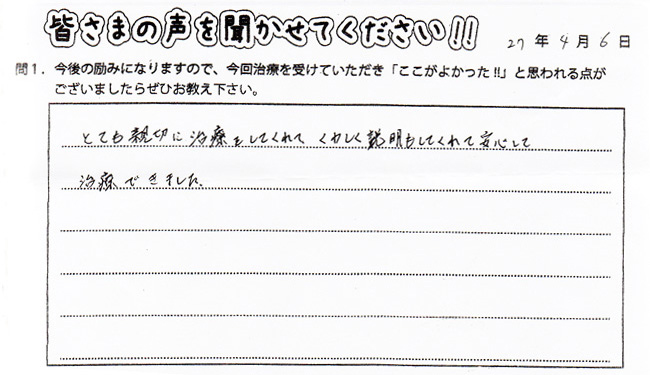 皆さまの声を聞かせてください!!
27年4月6日
問1．今後の励みになりますので、今回治療を受けていただき「ここがよかった!!」と思われる点が
ございましたらぜひお教え下さい。
とても親切に治療をしてくれて くわしく説明もしてくれて安心して
治療できました。